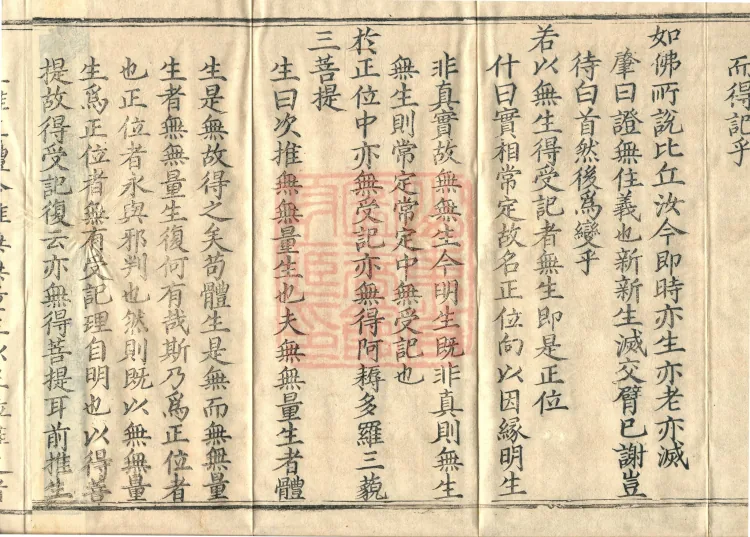 而得記乎
如佛所說比丘汝今即時亦生亦老亦滅
肇曰證無住義也新新生滅交臂已謝豈
待白首然後為變乎
若以無生得受記者無生即是正位
什曰實相常定故名正位向以因緣明生
非真實故無無生今明生既非真則無生
無生則常定常定中無受記也
於正位中亦無受記亦無得阿耨多羅三藐
三菩提
生曰次推無無量生也夫無無量生者體
生是無故得之矣苟體生是無而無無量
生者無無量生復何有哉斯乃為正位者
也正位者永與邪判也然則既以無無量
生為正位者無有受記理自明也以得菩
提故得受記復云亦無得菩提耳前推生